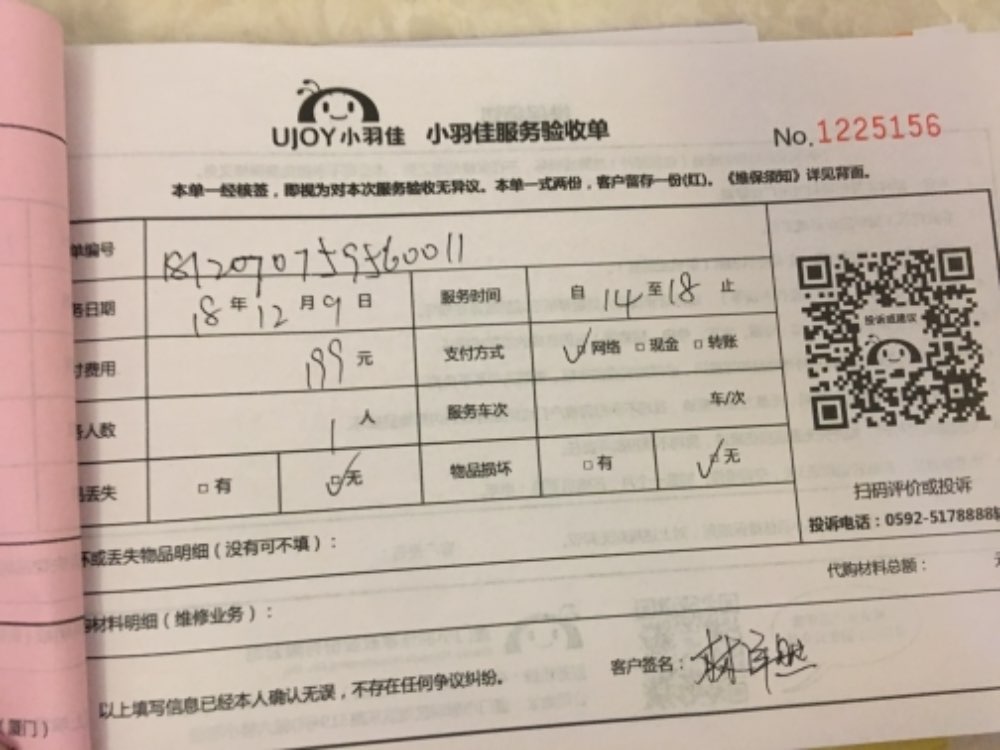 UJOY小羽佳 小羽佳服务验收单 No.1225156
本单一经核签，即视为对本次服务验收无异议。本单一式两份，客户留存一份(红)。《维保须知》详见背面。
单编号 1812090759560011
务日期 18 年 12 月 9 日 服务时间 自 14 至 18 止
付费用 199 元 支付方式 ☑网络 □现金 □转账
务人数 1 人 服务车次 车/次
品丢失 □有 ☑无 物品损坏 □有 ☑无
投诉或建议
扫码评价或投诉
投诉电话：0592-5178888
坏或丢失物品明细（没有可不填）：
代购材料总额： 元
材料明细（维修业务）：
以上填写信息已经本人确认无误，不存在任何争议纠纷。 客户签名：
（厦门）